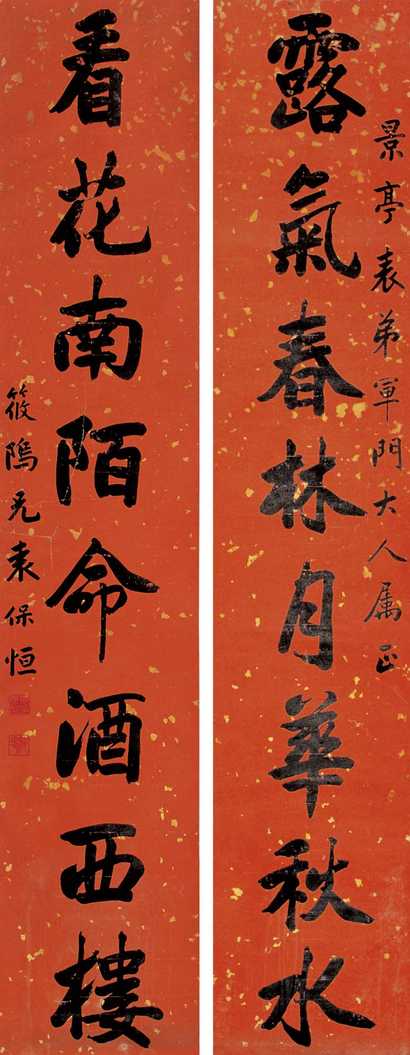 景亭表弟軍門大人属正
露氣春林月華秋水
看花南陌命酒西樓
筱隖兄袁保恒